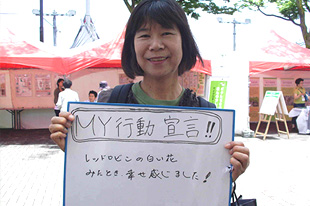 MY行動宣言!!
レッドロビンの白い花
みたとき、幸せ感じました!